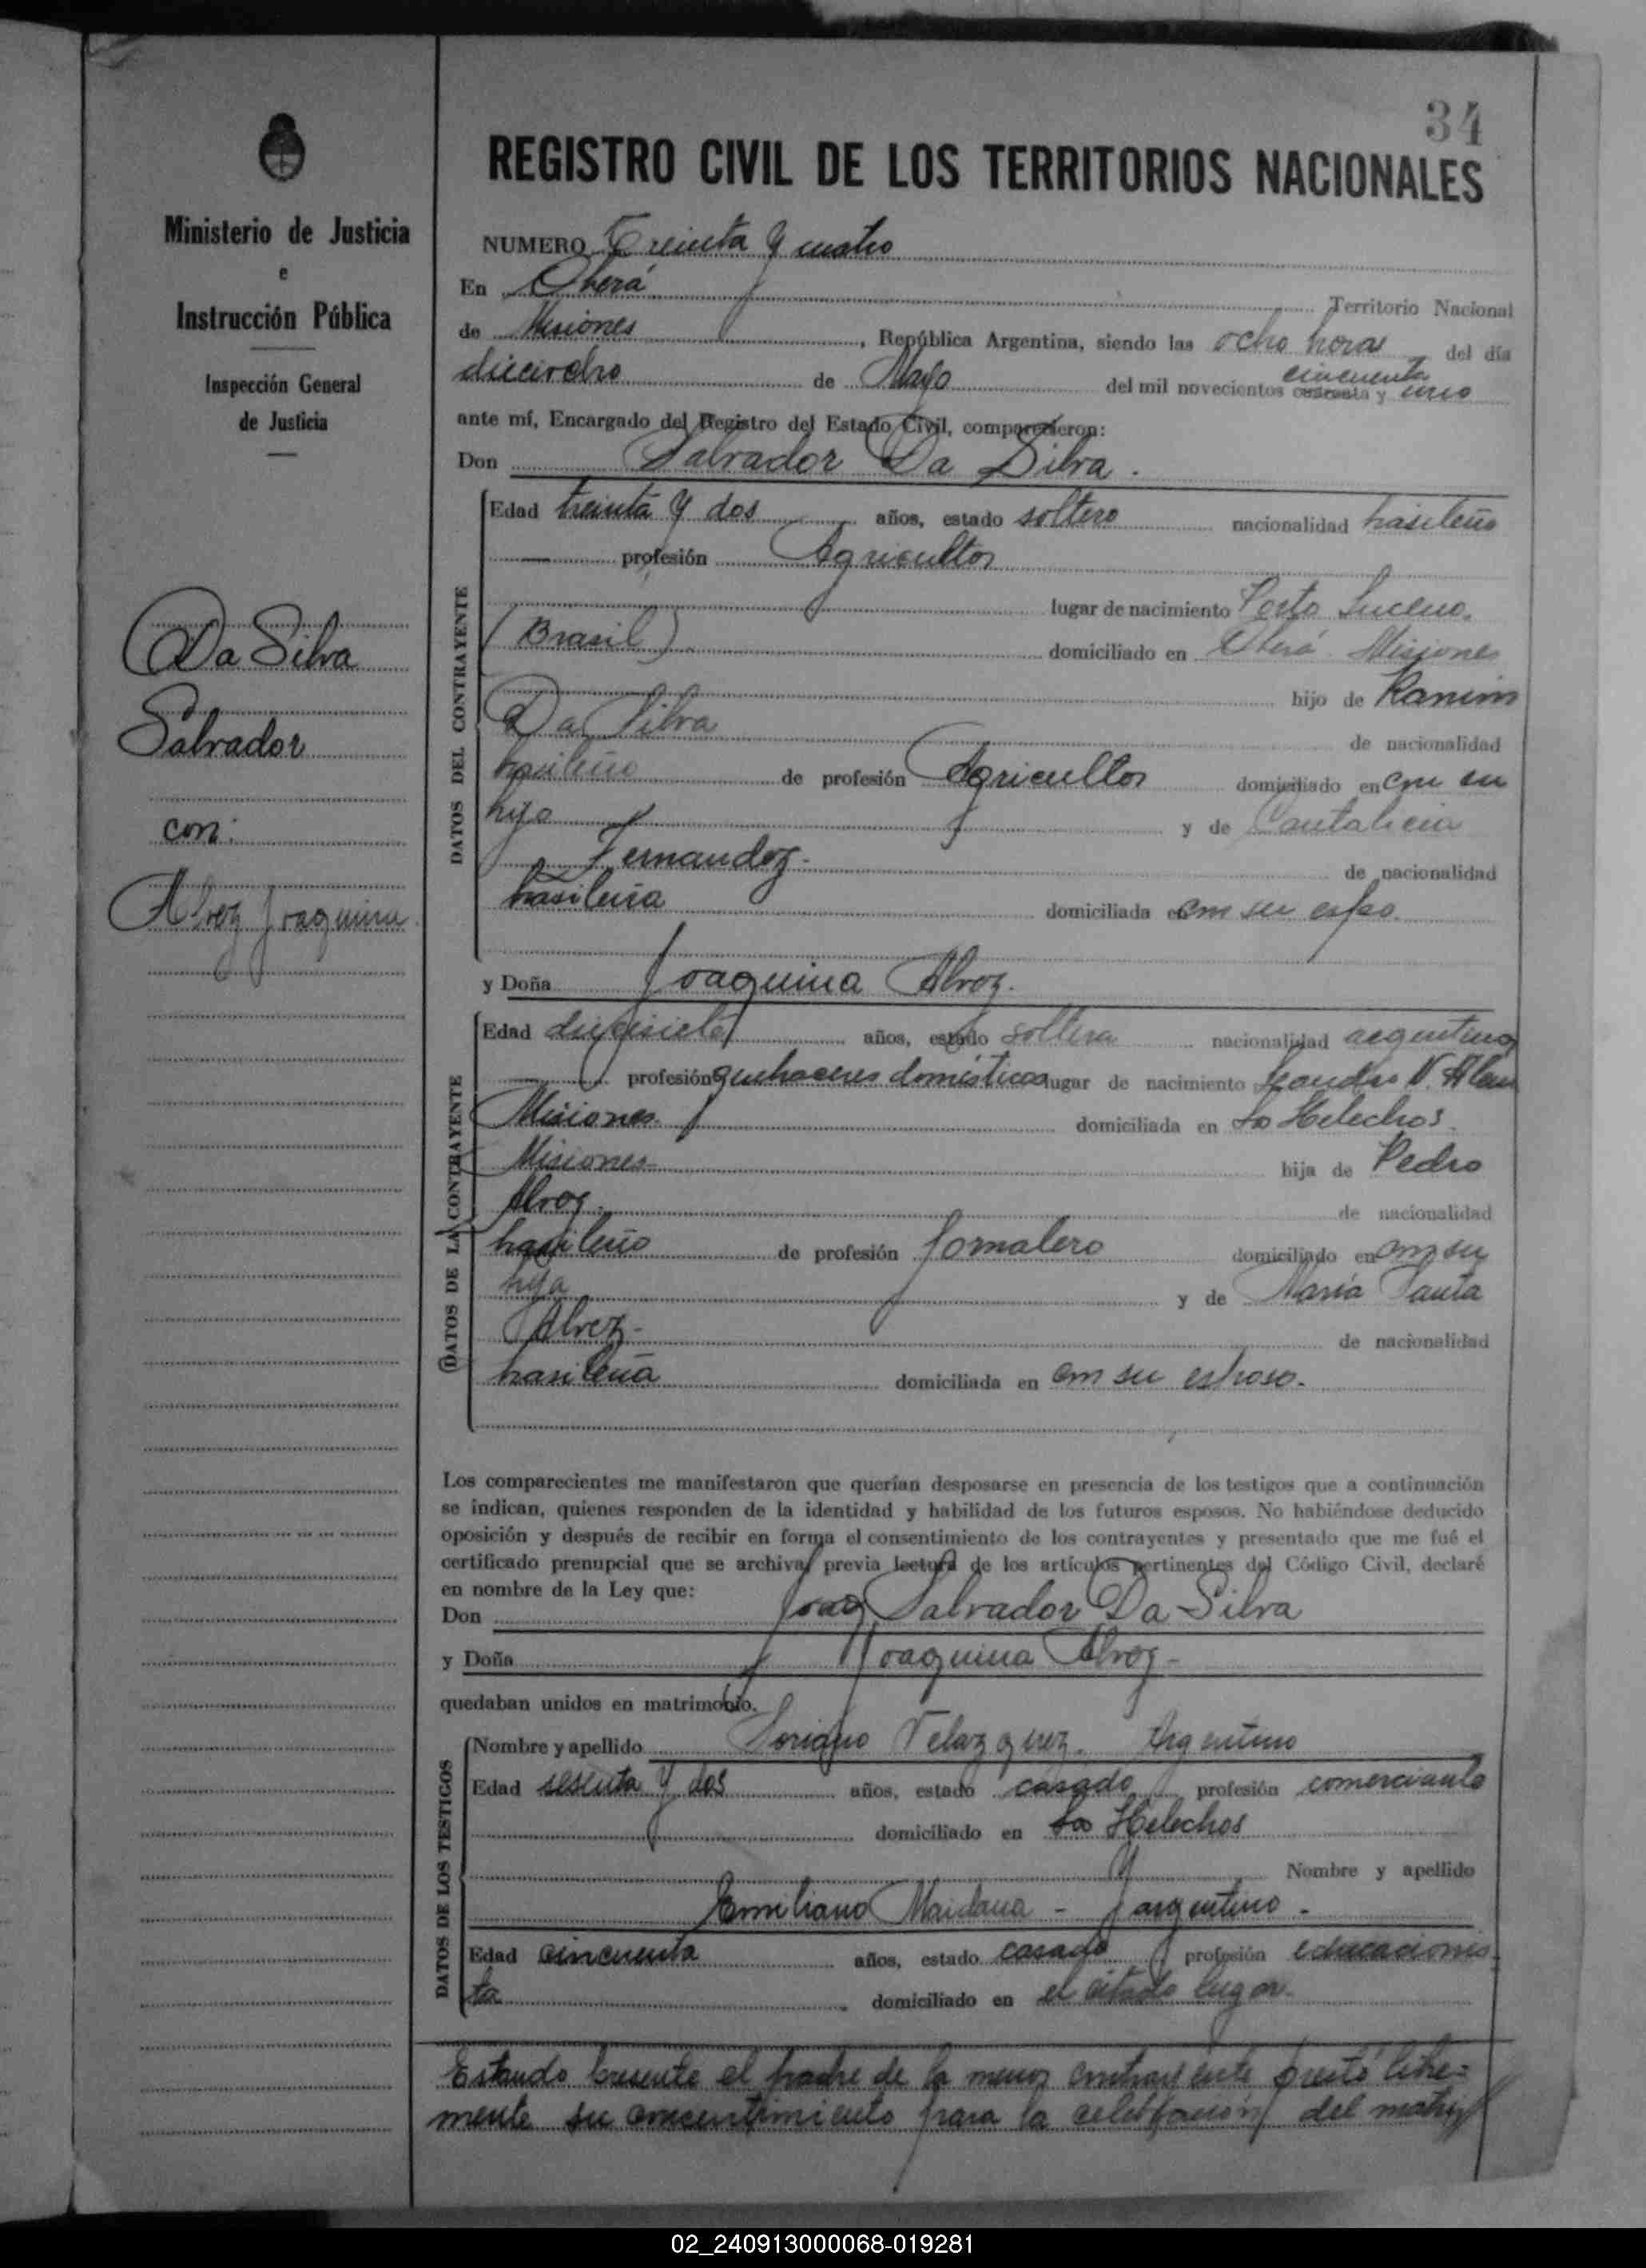 34
REGISTRO CIVIL DE LOS TERRITORIOS NACIONALES
Ministerio de Justicia
e
Instrucción Pública
Inspección General
de Justicia
Da Silva
Salvador
con:
Alvez Joaquina
NUMERO Treinta y cuatro
En Oberá Territorio Nacional
de Misiones, República Argentina, siendo las ocho horas del día
dieciocho de Mayo del mil novecientos cuarenta y cincuenta uno
ante mí, Encargado del Registro del Estado Civil, comparecieron:
Don Salvador Da Silva.
DATOS DEL CONTRAYENTE
Edad treinta y dos años, estado soltero nacionalidad brasileño
profesión Agricultor
lugar de nacimiento Porto Luceno.
(Brasil) domiciliado en Oberá Misiones
hijo de
Da Silva de nacionalidad
brasileño de profesión Agricultor domiciliado en con su
hijo y de Cantalicia
Fernandez. de nacionalidad
brasileña domiciliada en con su espo.
y Doña Joaquina Alvez.
DATOS DE LA CONTRAYENTE
Edad diecisiete años, estado soltera nacionalidad argentina
profesión quehaceres domésticos lugar de nacimiento Leandro N. Alem
Misiones domiciliada en Los Helechos.
Misiones hija de Pedro
Alvez. de nacionalidad
brasileño de profesión Jornalero domiciliado en con su
hija y de María Santa
Alvez- de nacionalidad
brasileña domiciliada en con su esposo.
Los comparecientes me manifestaron que querían desposarse en presencia de los testigos que a continuación
se indican, quienes responden de la identidad y habilidad de los futuros esposos. No habiéndose deducido
oposición y después de recibir en forma el consentimiento de los contrayentes y presentado que me fué el
certificado prenupcial que se archiva, previa lectura de los artículos pertinentes del Código Civil, declaré
en nombre de la Ley que:
Don Salvador Da Silva
y Doña Joaquina Alvez-
quedaban unidos en matrimonio.
DATOS DE LOS TESTIGOS
Nombre y apellido Soriano Velazquez. Argentino
Edad sesenta y dos años, estado casado profesión comerciante
domiciliado en Los Helechos
y Nombre y apellido
Emiliano Maidana - argentino.
Edad cincuenta años, estado casado profesión educacionis-
ta domiciliado en el citado lugar.
Estando presente el padre de la menor contrayente prestó libre=
mente su concentimiento para la celebración del
02_240913000068-019281